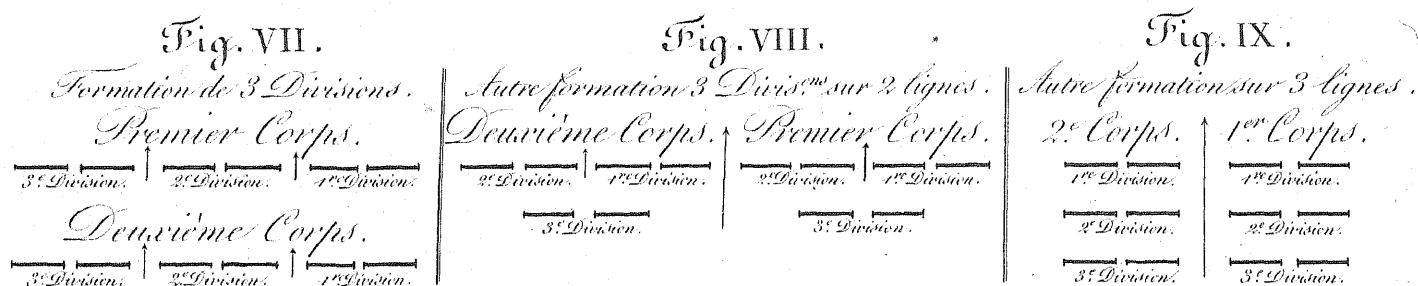 Fig. VII.
Formation de 3 Divisions.
Premier Corps.
3.e Division. 2.e Division. 1.re Division.
Deuxième Corps.
3.e Division. 2.e Division. 1.re Division.
Fig. VIII.
Autre formation 3 Divis.ons sur 2 lignes.
Deuxième Corps. Premier Corps.
2.e Division. 1.re Division. 2.e Division. 1.re Division.
3.e Division. 3.e Division.
Fig. IX.
Autre formation sur 3 lignes.
2.e Corps. 1.er Corps.
1.re Division. 1.re Division.
2.e Division. 2.e Division.
3.e Division. 3.e Division.